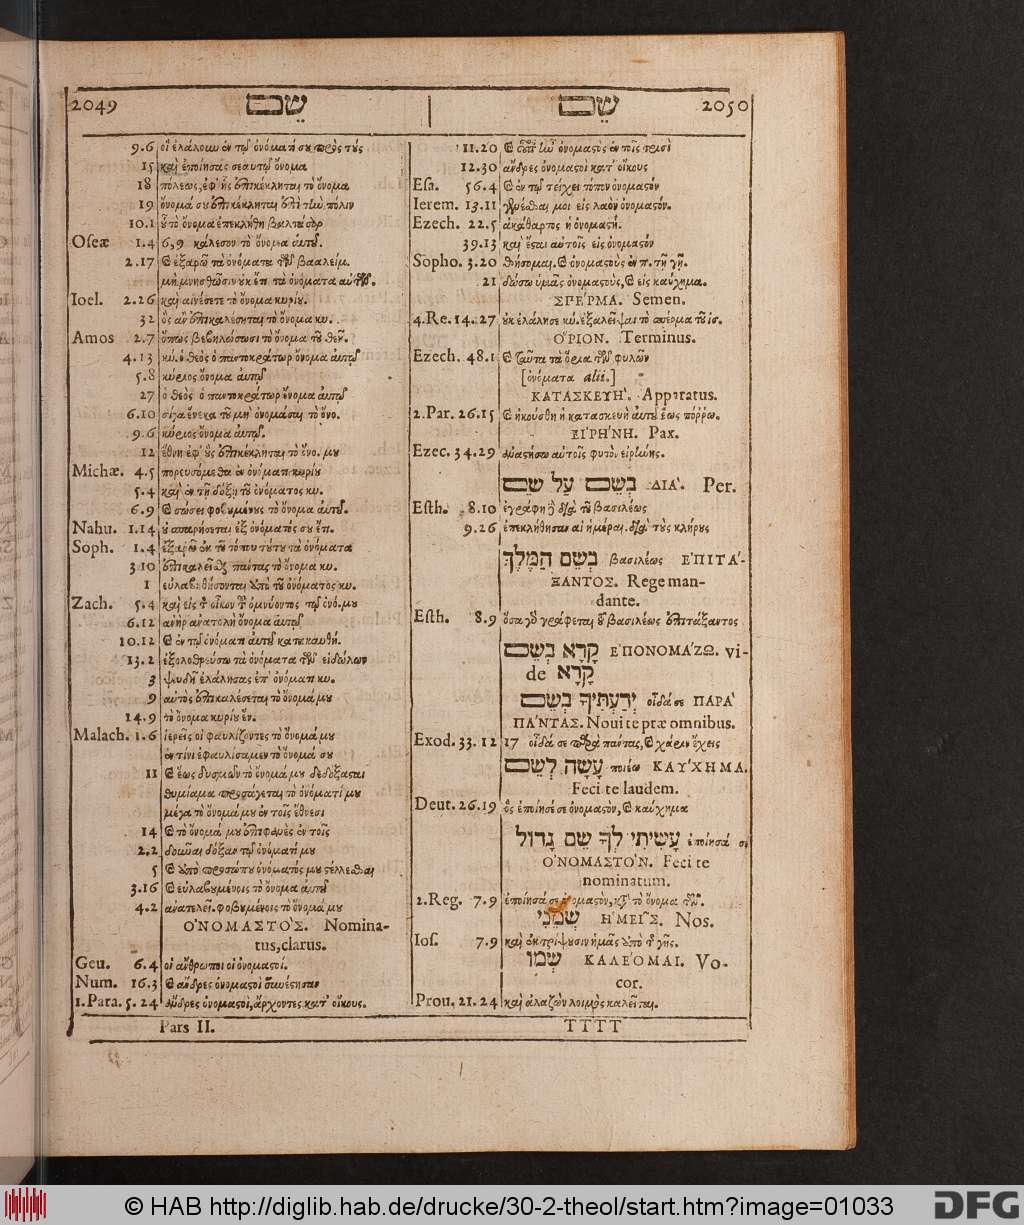 2049 שֵׁם
שֵׁם 2050
9.6 οἳ ἐλάλουν ἐν τῷ ὀνόματί σου πρὸς τοὺς
15 καὶ ἐποίησας σεαυτῷ ὄνομα
18 πόλεως, ἐφ' ἧς ἐπικέκληται τὸ ὄνομα
19 ὄνομά σου ἐπικέκληται ἐπὶ τὴν πόλιν
10.1 οὗ τὸ ὄνομα ἐπεκλήθη βαλτάσαρ
Oseæ 1.4 6,9 κάλεσον τὸ ὄνομα αὐτοῦ.
2.17 καὶ ἐξαρῶ τὰ ὀνόματα τῶν βααλείμ.
μὴ μνησθῶσιν οὐκ ἔτι τὰ ὀνόματα αὐτῶν.
Ioel. 2.26 καὶ αἰνέσετε τὸ ὄνομα κυρίου.
32 ὃς ἂν ἐπικαλέσηται τὸ ὄνομα κυ.
Amos 2.7 ὅπως βεβηλώσωσι τὸ ὄνομα τοῦ θεοῦ.
4.13 κύ. ὁ θεὸς ὁ παντοκράτωρ ὄνομα αὐτῷ
5.8 κύριος ὄνομα αὐτῷ
27 ὁ θεὸς ὁ παντοκράτωρ ὄνομα αὐτῷ
6.10 σίγα ἕνεκα τοῦ μὴ ὀνομάσαι τὸ ὄνο.
9.6 κύριος ὄνομα αὐτῷ.
12 ἔθνη ἐφ' οὓς ἐπικέκληται τὸ ὄνο. μου
Michæ. 4.5 πορευσόμεθα ἐν ὀνόματι κυρίου
5.4 καὶ ἐν τῇ δόξῃ τοῦ ὀνόματος κυ.
6.9 καὶ σώσει φοβουμένους τὸ ὄνομα αὐτοῦ.
Nahu. 1.14 οὐ σπαρήσεται ἐξ ὀνόματός σου ἔτι.
Soph. 1.4 ἐξαρῶ ἐκ τοῦ τόπου τούτου τὰ ὀνόματα
3 10 ἐπικαλεῖσθαι πάντας τὸ ὄνομα κυ.
1 εὐλαβηθήσονται ὑπὸ τοῦ ὀνόματος κυ.
Zach. 5.4 καὶ εἰς τὸν οἶκον τοῦ ὀμνύοντος τῷ ὀνό. μου
6.12 ἀνὴρ ἀνατολὴ ὄνομα αὐτῷ
10.12 καὶ ἐν τῷ ὀνόματι αὐτοῦ κατακαυθή.
13.2 ἐξολοθρεύσω τὰ ὀνόματα τῶν εἰδώλων
3 ψευδῆ ἐλάλησας ἐπ' ὀνόματι κυ.
9 αὐτὸς ἐπικαλέσεται τὸ ὄνομά μου
14.9 τὸ ὄνομα κυρίου ἕν.
Malach. 1.6 ἱερεῖς οἱ φαυλίζοντες τὸ ὄνομά μου
ἐν τίνι ἐφαυλίσαμεν τὸ ὄνομά σου
11 καὶ ἕως δυσμῶν τὸ ὄνομά μου δεδόξασται
θυμίαμα προσάγεται τὸ ὀνόματί μου
μέγα τὸ ὄνομά μου ἐν τοῖς ἔθνεσι
14 καὶ τὸ ὄνομά μου ἐπιφανὲς ἐν τοῖς
2.2 δοῦναι δόξαν τῷ ὀνόματί μου
5 καὶ ὑπὸ προσώπου ὀνόματός μου στέλλεσθαι
3.16 καὶ εὐλαβουμένοις τὸ ὄνομα αὐτοῦ
4.2 ἀνατελεῖ. φοβουμένοις τὸ ὄνομά μου
ΟΝΟΜΑΣΤΟΣ. Nomina-
tus, clarus.
Geu. 6.4 οἱ ἄνθρωποι οἱ ὀνομαστοί.
Num. 16.3 καὶ ἄνδρες ὀνομαστοὶ συνέστησαν
1.Para. 5.24 ἄνδρες ὀνομαστοὶ, ἄρχοντες κατ' οἴκους.
11.20 καὶ οὗτος ἦν ὀνομαστὸς ἐν τοῖς τρισὶ
12.30 ἄνδρες ὀνομαστοὶ κατ' οἴκους
Esa. 56.4 καὶ ἐν τῷ τείχει τόπον ὀνομαστόν
Ierem. 13.11 γενέσθαι μοι εἰς λαὸν ὀνομαστόν.
Ezech. 22.5 ἀκάθαρτος ἡ ὀνομαστή.
39.13 καὶ ἔσται αὐτοῖς εἰς ὀνομαστόν
Sopho. 3.20 θήσομαι. καὶ ὀνομαστοὺς ἐν π. τῇ γῇ.
21 δώσω ὑμᾶς ὀνομαστοὺς, καὶ εἰς καύχημα.
ΣΠΕΡΜΑ. Semen.
4.Re. 14.27 οὐκ ἐλάλησε κύ. ἐξαλεῖψαι τὸ σπέρμα τοῦ ἰσ.
ΟΡΙΟΝ. Terminus.
Ezech. 48.1 καὶ ταῦτα τὰ ὅρια τῶν φυλῶν
[ὀνόματα alii.]
ΚΑΤΑΣΚΕΥΗ'. Apparatus.
2.Par. 26.15 καὶ ἠκούσθη ἡ κατασκευὴ αὐτοῦ ἕως πόῤῥω.
ΕΙΡΗΝΗ. Pax.
Ezec. 34.29 ἀναστήσω αὐτοῖς φυτὸν εἰρήνης.
בְּשֵׁם עַל שֵׁם ΔΙΑ'. Per.
Esth. 8.10 ἐγράφη δὲ διὰ τοῦ βασιλέως
9.26 ἐπεκλήθησαν αἱ ἡμέραι διὰ τοὺς κλήρους
בְּשֵׁם הַמֶּלֶךְ βασιλέως ΕΠΙΤΑ'-
ΞΑΝΤΟΣ. Rege man-
dante.
Esth. 8.9 ὅσα γὰρ γράφεται τοῦ βασιλέως ἐπιτάξαντος
קָרָא בְּשֵׁם ΕΠΟΝΟΜΑ'ΖΩ. vi-
de קָרָא
יְדַעְתִּיךָ בְשֵׁם οἶδά σε ΠΑΡΑ'
ΠΑ'ΝΤΑΣ. Noui te præ omnibus.
Exod. 33. 12 17 οἶδά σε παρὰ πάντας, καὶ χάριν ἔχεις
עָשָׂה לְשֵׁם ποιέω ΚΑΥ'ΧΗΜΑ.
Feci te laudem.
Deut. 26.19 ὃς ἐποίησέ σε ὀνομαστὸν, καὶ καύχημα
עָשִׂיתִי לְךָ שֵׁם גָּדוֹל ἐποίησά σε
Ο'ΝΟΜΑΣΤΟ'Ν. Feci te
nominatum.
2.Reg. 7.9 ἐποίησά σε ὀνομαστὸν, κατὰ τὸ ὄνομα τῶν.
שְׁמֵנִי ΗΜΕΙ͂Σ. Nos.
Ios. 7.9 καὶ ἐκτρίψουσιν ἡμᾶς ὑπὸ τῆς γῆς.
שְׁמוֹ ΚΑΛΕ'ΟΜΑΙ. Vo-
cor.
Prou. 21.24 καὶ ἀλαζὼν λοιμὸς καλεῖται.
Pars II.
TTTT
© HAB http://diglib.hab.de/drucke/30-2-theol/start.htm?image=01033
DFG